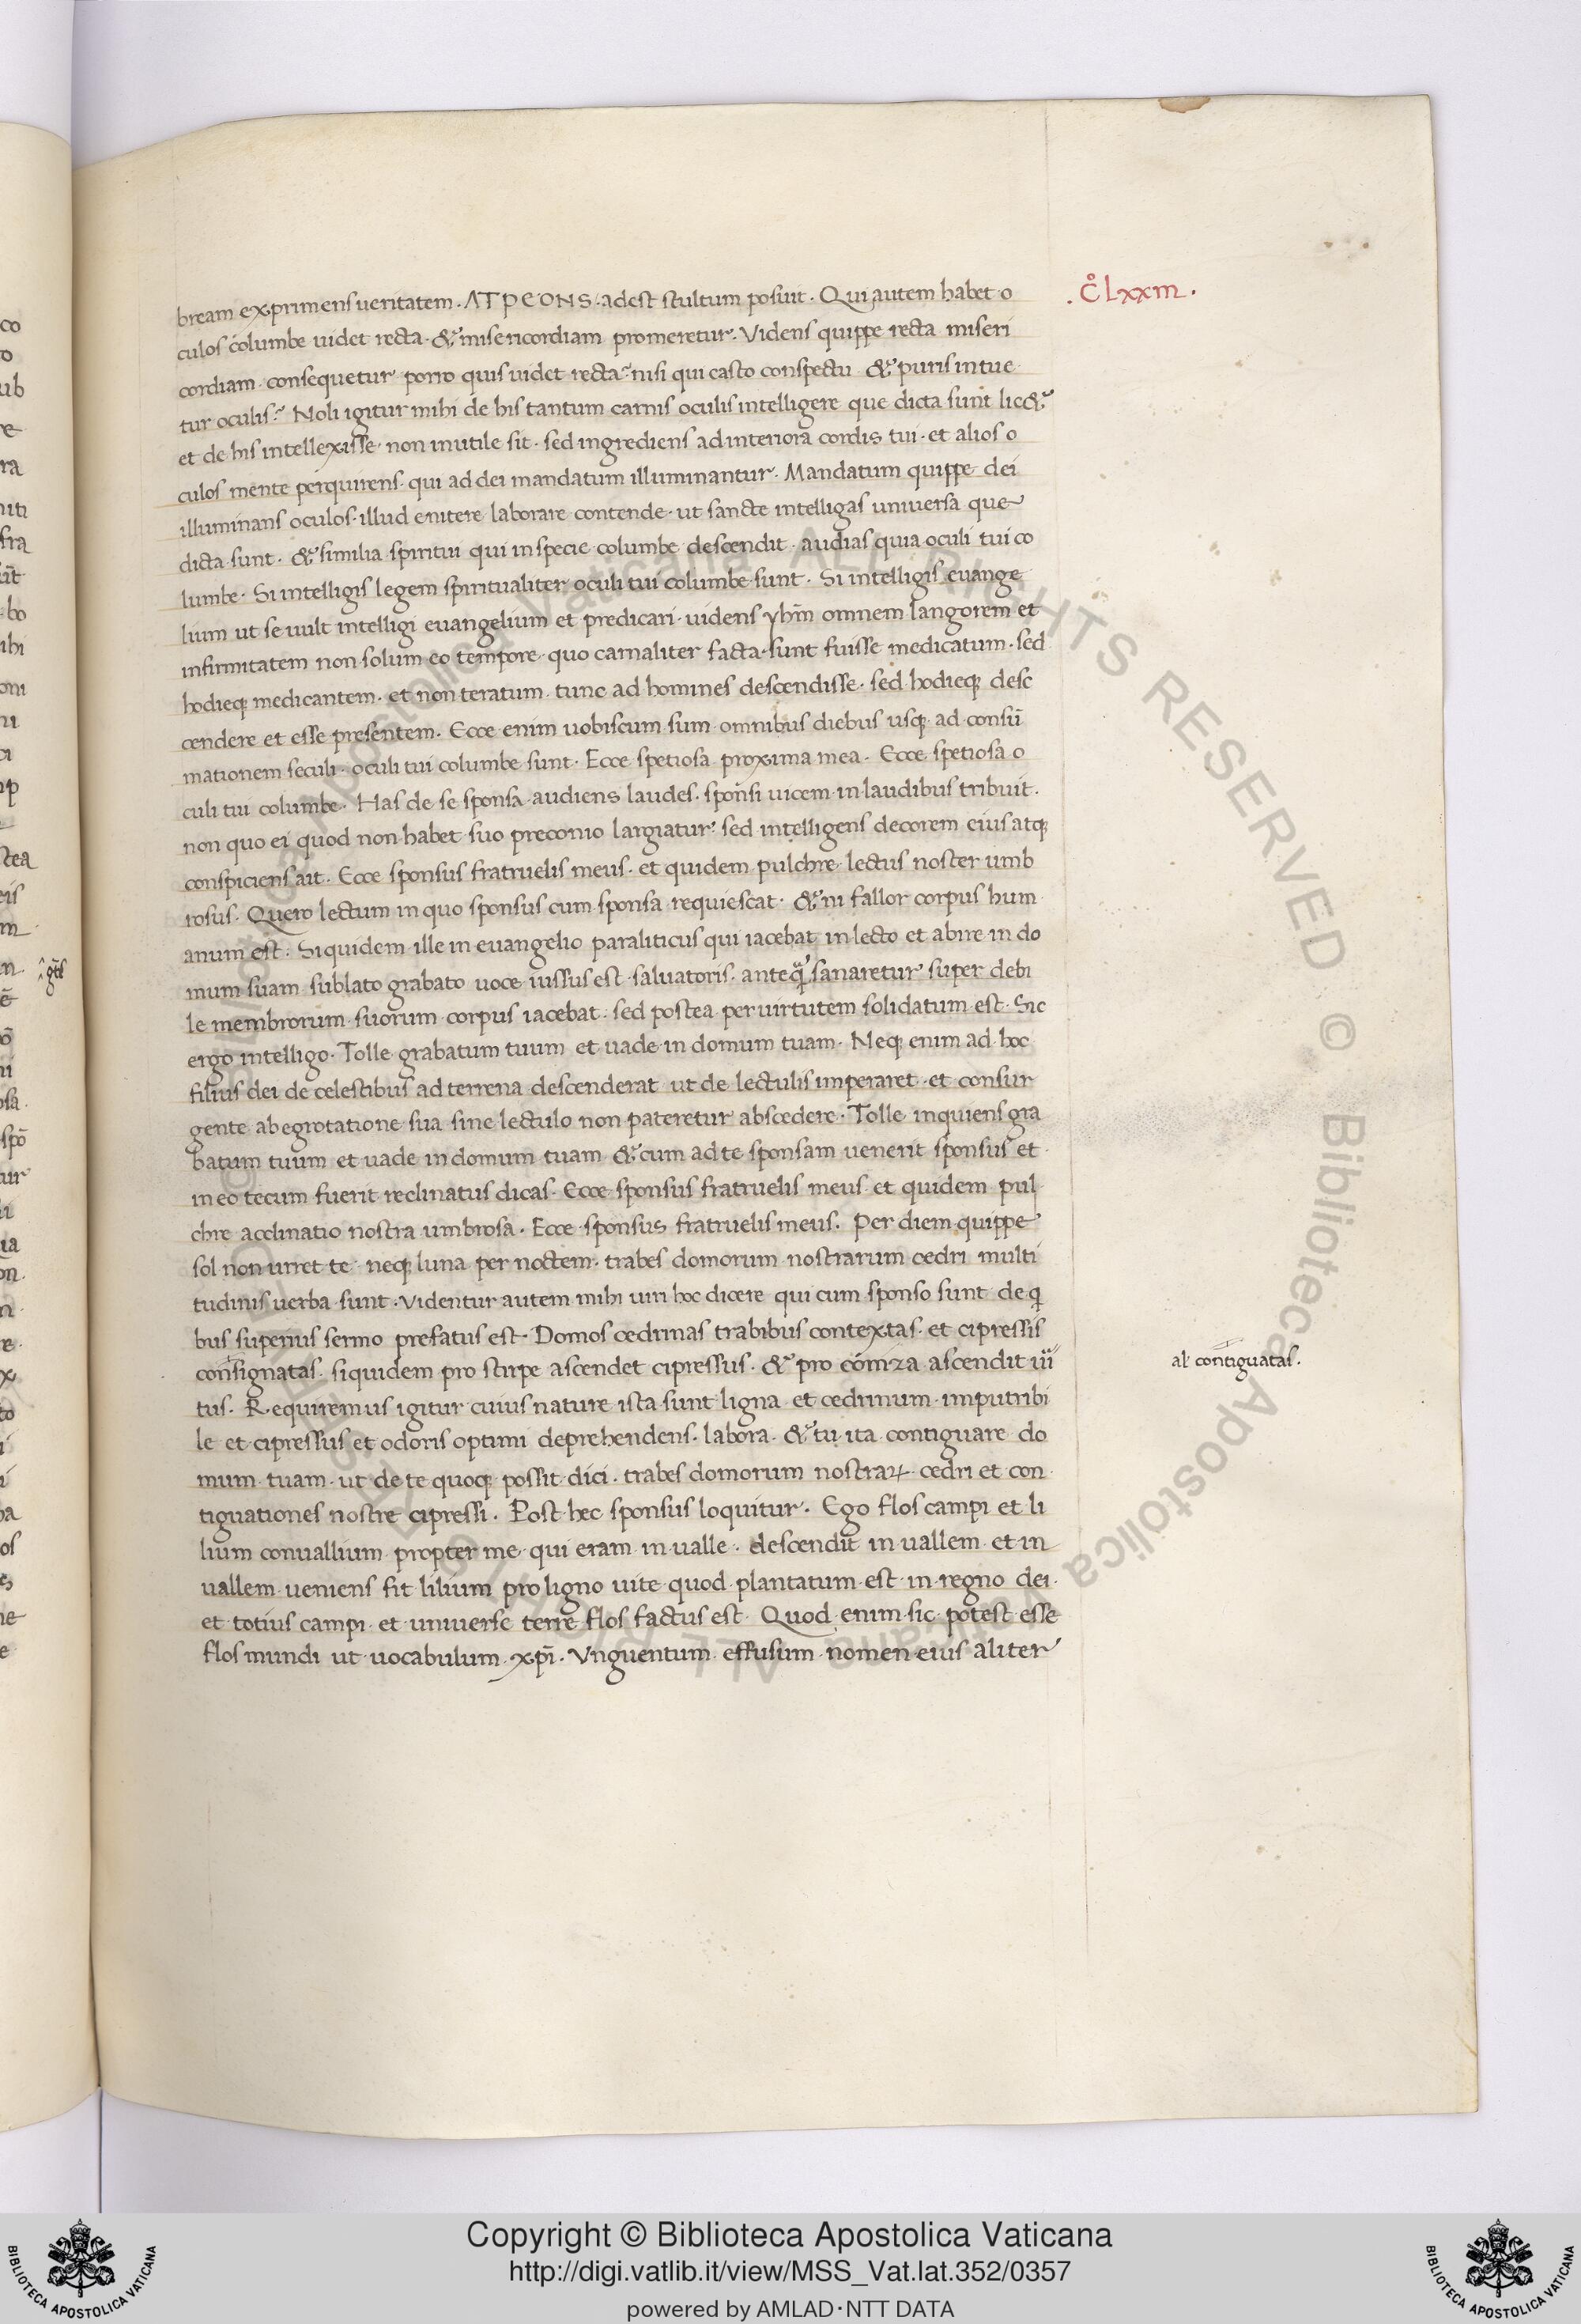 bream exprimens ueritatem. ΛΤΡΕΟΝS. adest stultum posuit. Qui autem habet o
.C̊Lxxiii.
culos columbe uidet recta. & misericordiam promeretur. Videns quippe recta miseri
cordiam consequetur porro quis uidet recta? nisi qui casto conspectu & puris intue
tur oculis? Noli igitur mihi de his tantum carnis oculis intelligere que dicta sunt lic&
et de his intellexisse non inutile sit. sed ingrediens ad interiora cordis tui. et alios o
culos mente perquirens. qui ad dei mandatum illuminantur. Mandatum quippe dei
illuminans oculos. illud enitere laborare contende. ut sancte intelligas uniuersa que
dicta sunt. & similia spiritui qui in specie columbe descendit. audias quia oculi tui co
lumbe. Si intelligis legem spiritualiter oculi tui columbe sunt. Si intelligis euange
lium ut se uult intelligi euangelium et predicari. uidens yhm̄ omnem langorem et
infirmitatem non solum eo tempore quo carnaliter facta sunt fuisse medicatum. sed
hodieq; medicantem. et non teratum tunc ad homines descendisse. sed hodieq; desc
cendere et esse presentem. Ecce enim uobiscum sum omnibus diebus usq; ad consū
mationem seculi. oculi tui columbe sunt. Ecce spetiosa proxima mea. Ecce spetiosa o
culi tui columbe. Has de se sponsa audiens laudes. sponsi uicem in laudibus tribuit.
non quo ei quod non habet suo preconio largiatur. sed intelligens decorem eius atq;
conspiciens ait. Ecce sponsus fratruelis meus. et quidem pulchre lectus noster umb
rosus. Quero lectum in quo sponsus cum sponsa requiescat. & ni fallor corpus hum
anum est. Siquidem ille in euangelio paraliticus qui iacebat in lecto et abire in do
mum suam sublato grabato uoce iussus est saluatoris. anteq̄ sanaretur super debi
le membrorum suorum corpus iacebat. sed postea per uirtutem solidatum est. Sic
ergo intelligo. Tolle grabatum tuum et uade in domum tuam. Neq; enim ad hoc
filius dei de celestibus ad terrena descenderat ut de lectulis imperaret. et consur
gente ab egrotatione sua sine lectulo non pateretur abscedere. Tolle inquiens gra
batum tuum et uade in domum tuam & cum ad te sponsam uenerit sponsus et
in eo tecum fuerit reclinatus dicas. Ecce sponsus fratruelis meus et quidem pul
chre acclinatio nostra umbrosa. Ecce sponsus fratruelis meus. Per diem quippe
sol non urret te neq; luna per noctem. trabes domorum nostrarum cedri multi
tudinis uerba sunt. Videntur autem mihi uiri hoc dicere qui cum sponso sunt de q̄
bus superius sermo prefatus est. Domos cedrinas trabibus contextas. et cipressis
consignatas. siquidem pro stirpe ascendet cipressus. & pro coniza ascendit
al' contiguatas.
tus. Requiremus igitur cuius nature ista sunt ligna et cedrinum imputribi
le et cipressus et odoris optimi deprehendens. labora & tu ita contiguare do
mum tuam ut de te quoq; possit dici. trabes domorum nostraꝝ cedri et con
tiguationes nostre cipressi. Post hec sponsus loquitur. Ego flos campi et li
lium conuallium propter me qui eram in ualle. descendit in uallem et in
uallem ueniens fit lilium pro ligno uite quod plantatum est in regno dei.
et totius campi et uniuerse terre flos factus est. Quod enim sic potest esse
flos mundi ut uocabulum xp̄i. Vnguentum effusum nomen eius aliter
Copyright © Biblioteca Apostolica Vaticana
http://digi.vatlib.it/view/MSS_Vat.lat.352/0357
powered by AMLAD·NTT DATA
BIBLIOTECA APOSTOLICA VATICANA
BIBLIOTECA APOSTOLICA VATICANA